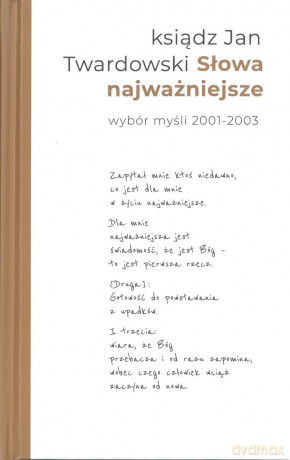 ksiądz Jan
Twardowski Słowa
najważniejsze
wybór myśli 2001-2003
Zapytał mnie ktoś niedawno,
co jest dla mnie
w życiu najważniejsze.
Dla mnie
najważniejsza jest
świadomość, że jest Bóg –
to jest pierwsza rzecz.
[Druga]:
Gotowość do powstawania
z upadków.
I trzecia:
wiara, że Bóg
przebacza i od razu zapomina,
wobec czego człowiek wciąż
zaczyna od nowa.
dvdmax